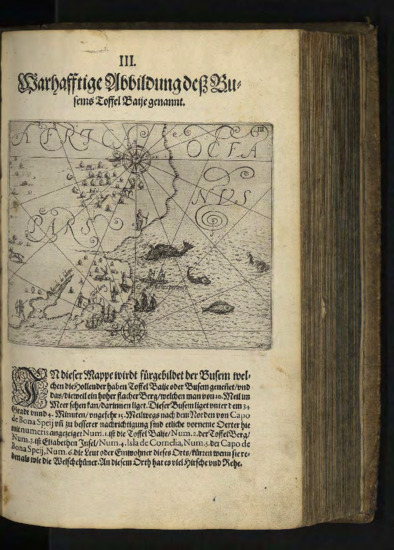 III.
Warhafftige Abbildung deß Bu-
sems Toffel Baije genannt.
III
AFRICÆ
OCEA
NVS
PARS
IN dieser Mappe wirdt fürgebildet der Busem wel-
chen die Hollender haben Toffel Baije oder Busem genennet/ vnd
das/ dieweil ein hoher flacher Berg/ welchen man von 10. Meil im
Meer sehen kan/ darinnen liget. Dieser Busem liget vnter dem 34
Gradt vnnd 4. Minuten/ vngefehr 15. Meilwegs nach dem Norden von Capo
de Bona Speij vñ zu besserer nachrichtigung sind etliche vorneme Oerter hie
mit numeris angezeiget Num. 1. ist die Toffel Baije/ Num. 2. der Toffel Berg/
Num. 3. ist Elisabethen Insel/ Num. 4. Isla de Cornelia, Num. 5. der Capo de
Bona Speij, Num. 6. die Leut oder Einwohner dieses Orts/ klucken wenn sie re-
den als wie die Welschehüner. An diesem Orth hat es viel Hirsche vnd Rehe.